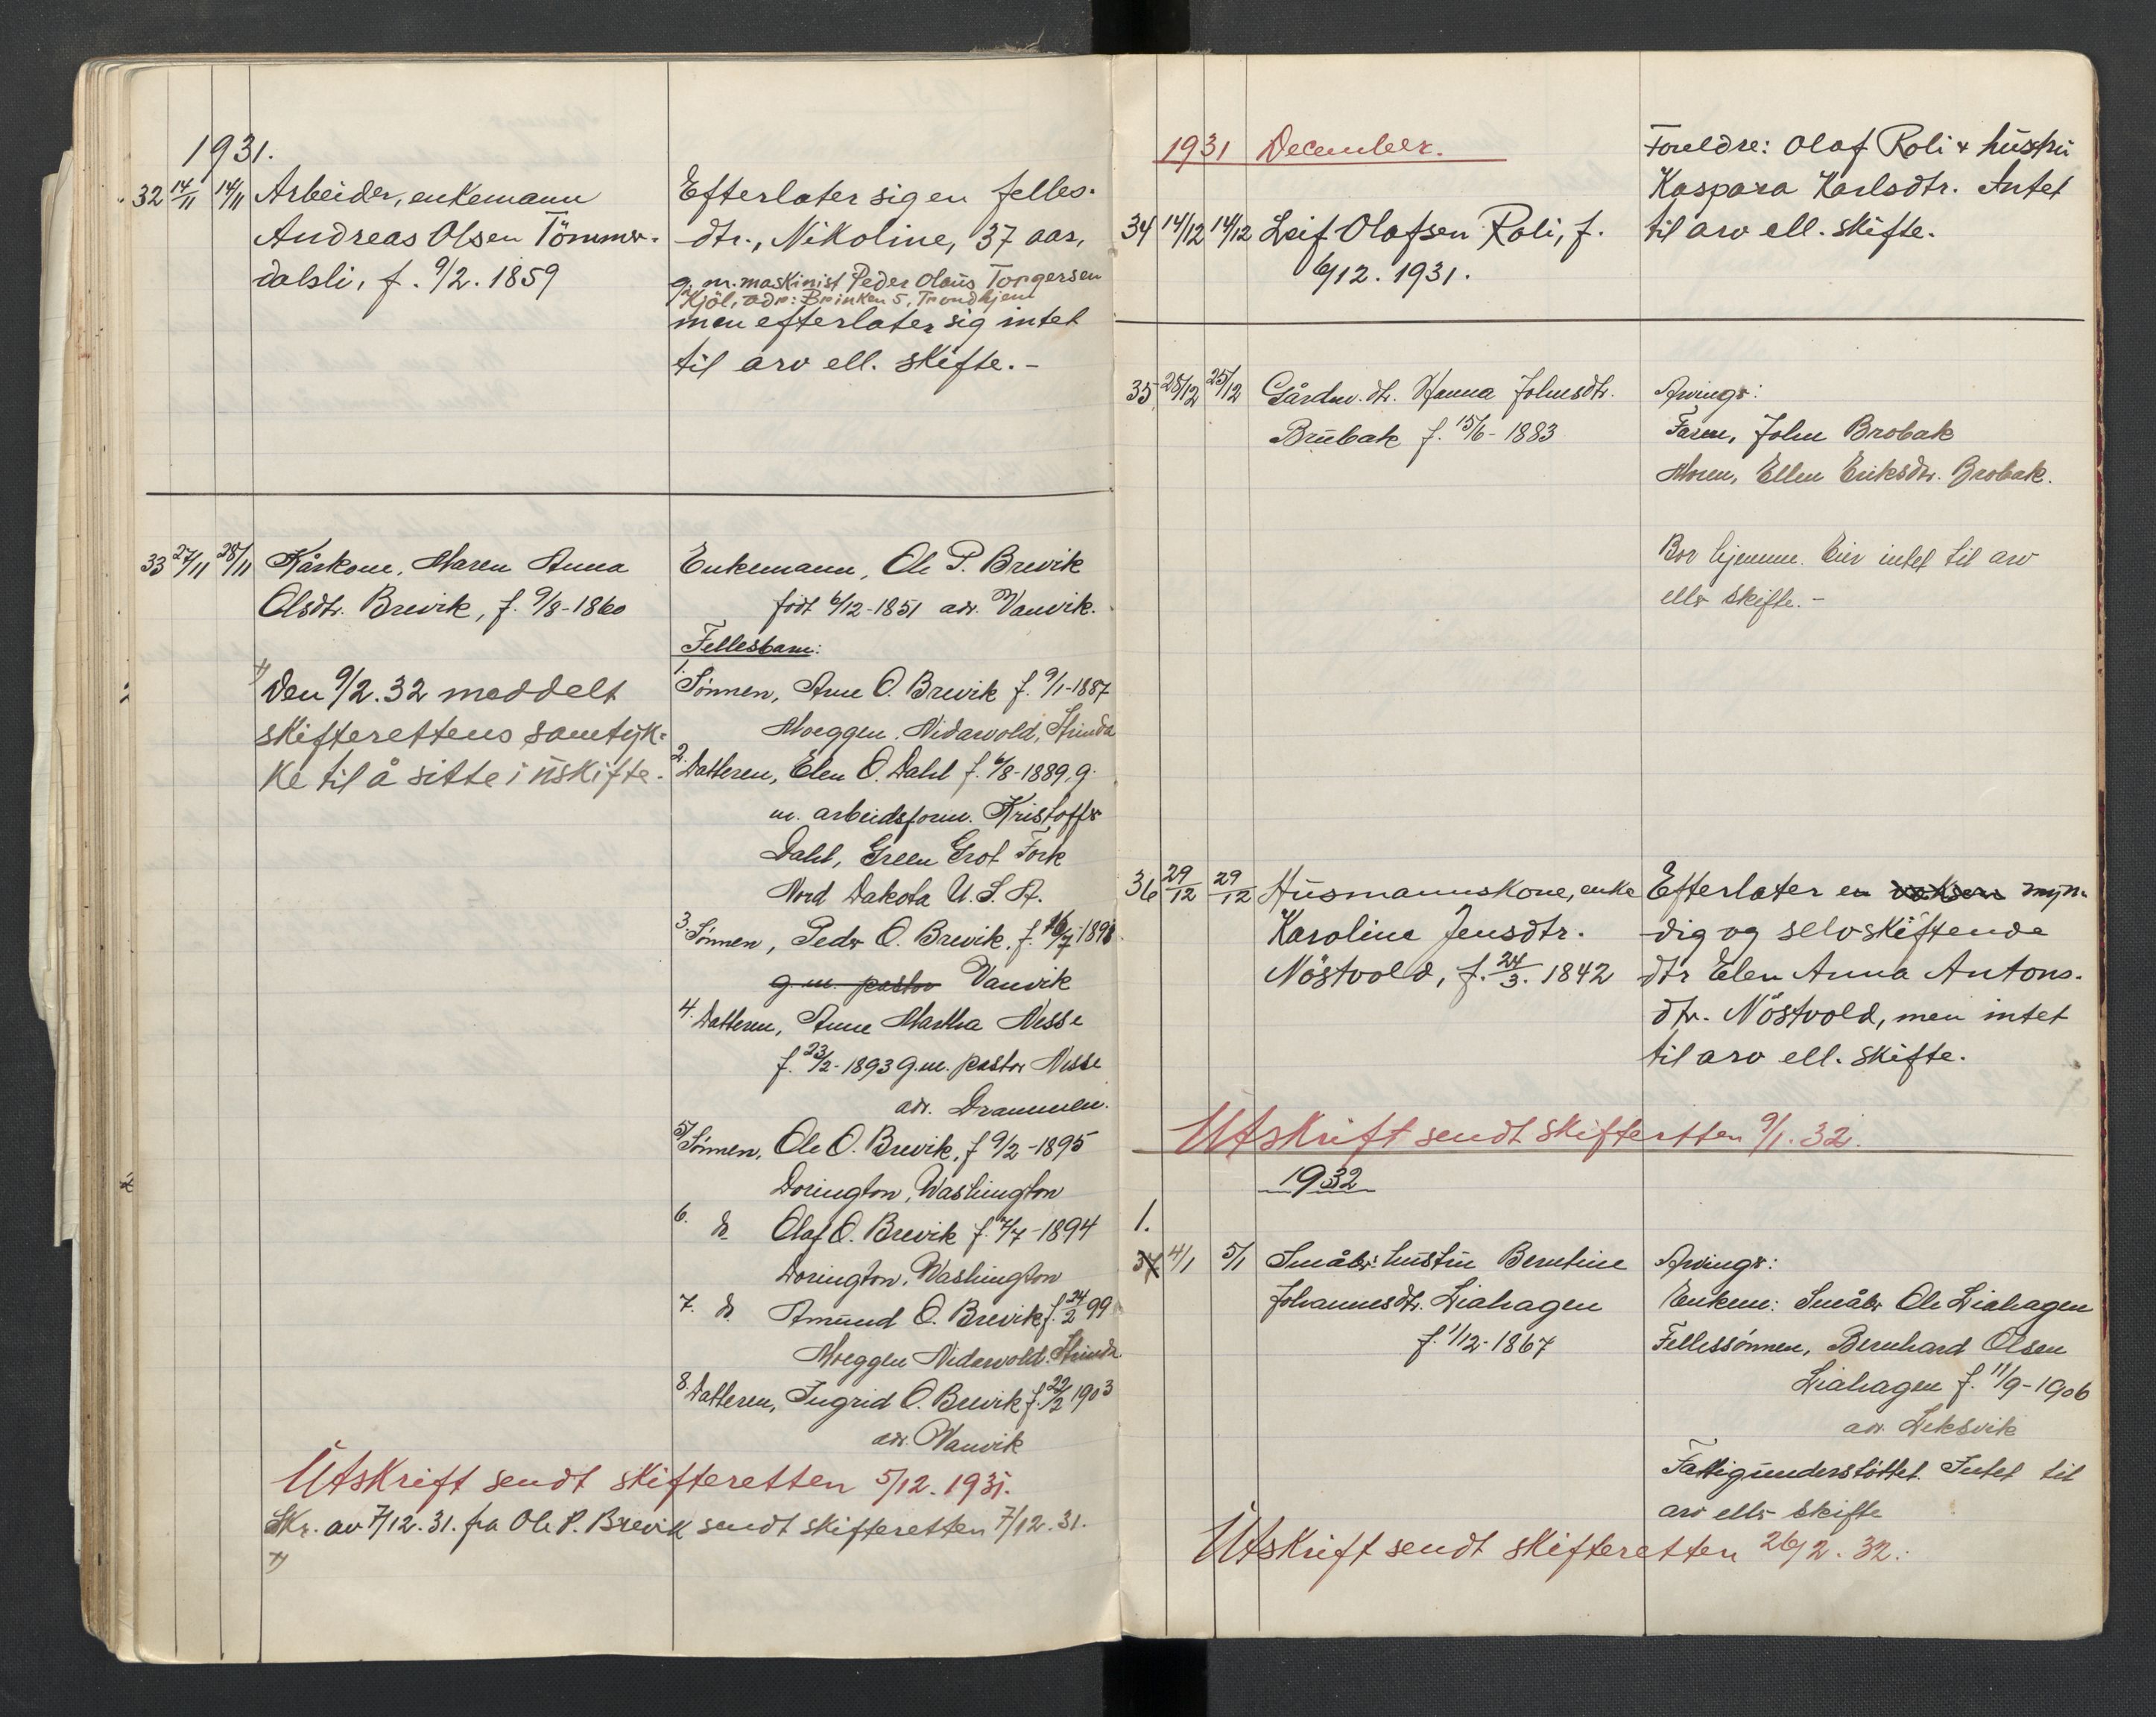 1931.
32 14/11 14/11 Arbeider, enkemann
Andreas Olsen Tömmer-
dalsli, f. 9/2. 1859
Efterlater sig en felles-
dtr., Nikoline, 37 aar,
g. m. maskinist Peder Olaus Torgersen
Kjöl, adr: Brinken 5, Trondhjem
men efterlater sig intet
til arv ell. skifte. -
33 27/11 28/11 Kårkone, Maren Anna
Olsdtr. Brevik, f. 9/8-1860
Den 9/2.32 meddelt
skifterettens samtyk-
ke til å sitte i uskifte.
Enkemann, Ole P. Brevik
født 6/12-1851 adr. Vanvik.
Fellesbarn:
1. Sönnen, Arne O. Brevik f. 9/1-1887
Moeggen, Nidarvold, Strinda
2. Datteren, Elen O. Dahl f. 6/8-1889, g.
m. arbeidsform. Kristoffer
Dahl, Green Grot Fork
Nord Dakota U.S.A.
3. Sönnen, Peder O. Brevik, f. 16/7-1898
g. m. pastor Vanvik
4. Datteren, Anne Martha Nesse
f. 23/2-1893 g.m. pastor Nesse
adr. Drammen.
5 Sönnen, Ole O. Brevik, f 9/2-1895
Dorington, Washington
6. do Olaf O. Brevik f. 7/7-1894
Dorington, Washington
7. do Amund O. Brevik f. 24/2 99
Moeggen Nidarvold. Strinda
8. Datteren, Ingrid O. Brevik f. 22/2 1903
adr. Vanvik
Utskrift sendt skifteretten 5/12. 1931.
Skr. av 7/12.31. fra Ole P. Brevik sendt skifteretten 7/12.31.
1931 December.
34 14/12 14/12 Leif Olafsen Roli, f.
6/12. 1931.
Foreldre: Olaf Roli & hustru
Kaspara Karlsdtr. Intet
til arv ell. skifte.
35 25/12 25/12 Gårdm. dtr. Hanna Johnsdtr.
Brubak f. 15/6-1883
Arvinger:
Faren, John Brobak
Moren, Ellen Eriksdtr. Brobak.
Bor hjemme. Eier intet til arv
eller skifte. -
36 29/12 29/12 Husmannskone, enke
Karoline Jensdtr.
Nöstvold, f. 24/3. 1842
Efterlater en voksen myn-
dig og selvskiftende
dtr Elen Anna Antons-
dtr. Nöstvold, men intet
til arv ell. skifte.
Utskrift sendt skifteretten 9/1. 32.
1932
1.
37 4/1 5/1 Småbr: hustru Berntine
Johannesdtr. Liahagen
f. 1/12-1867
Arvinger:
Enkem: Småbr Ole Liahagen
Fellessönnen, Bernhard Olsen
Liahagen f. 11/9-1906
adr. Leksvik
Fattigunderstöttet. Intet til
arv eller skifte
Utskrift sendt skifteretten 26/2. 32.